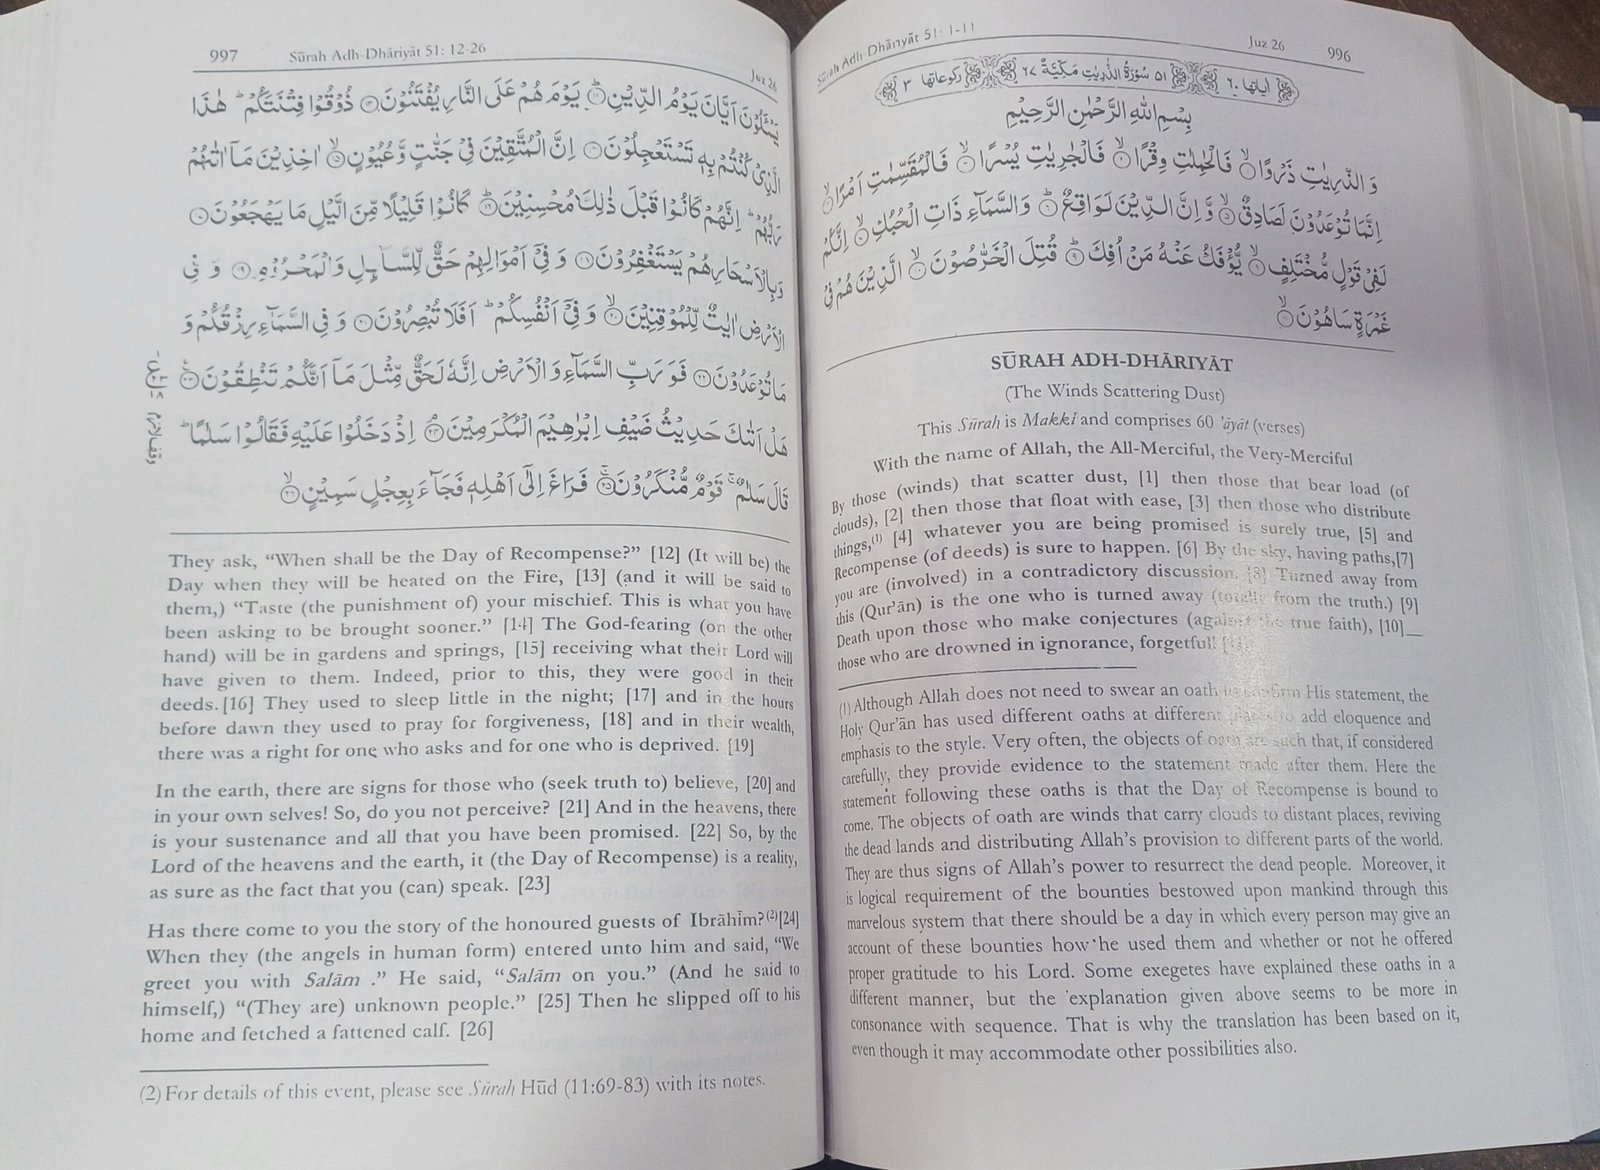 Sūrah Adh-Dhāriyāt 51: 1-11 Juz 26 996
اٰیاتها ٦٠ ٥١ سُوْرَةُ الذّٰرِيٰتِ مَكِّيَّةٌ ٦٧ رکوعاتها ٣
بِسْمِ اللّٰهِ الرَّحْمٰنِ الرَّحِيْمِ
وَ الذّٰرِيٰتِ ذَرْوًا ۙ﴿۱﴾ فَالْحٰمِلٰتِ وِقْرًا ۙ﴿۲﴾ فَالْجٰرِيٰتِ يُسْرًا ۙ﴿۳﴾ فَالْمُقَسِّمٰتِ اَمْرًا ۙ﴿۴﴾
اِنَّمَا تُوْعَدُوْنَ لَصَادِقٌ ۙ﴿۵﴾ وَّ اِنَّ الدِّيْنَ لَوَاقِعٌ ؕ﴿۶﴾ وَالسَّمَآءِ ذَاتِ الْحُبُكِ ۙ﴿۷﴾ اِنَّكُمْ
لَفِيْ قَوْلٍ مُّخْتَلِفٍ ۙ﴿۸﴾ يُّؤْفَكُ عَنْهُ مَنْ اُفِكَ ؕ﴿۹﴾ قُتِلَ الْخَرّٰصُوْنَ ۙ﴿۱۰﴾ الَّذِيْنَ هُمْ فِيْ
غَمْرَةٍ سَاهُوْنَ ۙ﴿۱۱﴾
SŪRAH ADH-DHĀRIYĀT
(The Winds Scattering Dust)
This Sūrah is Makkī and comprises 60 'āyāt (verses)
With the name of Allah, the All-Merciful, the Very-Merciful
By those (winds) that scatter dust, [1] then those that bear load (of
clouds), [2] then those that float with ease, [3] then those who distribute
things,(1) [4] whatever you are being promised is surely true, [5] and
Recompense (of deeds) is sure to happen. [6] By the sky, having paths,[7]
you are (involved) in a contradictory discussion. [8] Turned away from
this (Qur'ān) is the one who is turned away (totally from the truth.) [9]
Death upon those who make conjectures (against the true faith), [10]__
those who are drowned in ignorance, forgetful! [11]
(1) Although Allah does not need to swear an oath to confirm His statement, the
Holy Qur'ān has used different oaths at different places to add eloquence and
emphasis to the style. Very often, the objects of oath are such that, if considered
carefully, they provide evidence to the statement made after them. Here the
statement following these oaths is that the Day of Recompense is bound to
come. The objects of oath are winds that carry clouds to distant places, reviving
the dead lands and distributing Allah's provision to different parts of the world.
They are thus signs of Allah's power to resurrect the dead people. Moreover, it
is logical requirement of the bounties bestowed upon mankind through this
marvelous system that there should be a day in which every person may give an
account of these bounties how he used them and whether or not he offered
proper gratitude to his Lord. Some exegetes have explained these oaths in a
different manner, but the explanation given above seems to be more in
consonance with sequence. That is why the translation has been based on it,
even though it may accommodate other possibilities also.
997 Sūrah Adh-Dhāriyāt 51: 12-26 Juz 26
يَسْـَٔلُوْنَ اَيَّانَ يَوْمُ الدِّيْنِ ؕ﴿۱۲﴾ يَوْمَ هُمْ عَلَى النَّارِ يُفْتَنُوْنَ ﴿۱۳﴾ ذُوْقُوْا فِتْنَتَكُمْ ؕ هٰذَا
الَّذِيْ كُنْتُمْ بِهٖ تَسْتَعْجِلُوْنَ ﴿۱۴﴾ اِنَّ الْمُتَّقِيْنَ فِيْ جَنّٰتٍ وَّ عُيُوْنٍ ۙ﴿۱۵﴾ اٰخِذِيْنَ مَاۤ اٰتٰىهُمْ
رَبُّهُمْ ؕ اِنَّهُمْ كَانُوْا قَبْلَ ذٰلِكَ مُحْسِنِيْنَ ؕ﴿۱۶﴾ كَانُوْا قَلِيْلًا مِّنَ الَّيْلِ مَا يَهْجَعُوْنَ ﴿۱۷﴾
وَبِالْاَسْحَارِ هُمْ يَسْتَغْفِرُوْنَ ﴿۱۸﴾ وَ فِيْۤ اَمْوَالِهِمْ حَقٌّ لِّلسَّآئِلِ وَالْمَحْرُوْمِ ﴿۱۹﴾ وَ فِي
الْاَرْضِ اٰيٰتٌ لِّلْمُوْقِنِيْنَ ۙ﴿۲۰﴾ وَ فِيْۤ اَنْفُسِكُمْ ؕ اَفَلَا تُبْصِرُوْنَ ﴿۲۱﴾ وَ فِي السَّمَآءِ رِزْقُكُمْ وَ
مَا تُوْعَدُوْنَ ﴿۲۲﴾ فَوَ رَبِّ السَّمَآءِ وَ الْاَرْضِ اِنَّهٗ لَحَقٌّ مِّثْلَ مَاۤ اَنَّكُمْ تَنْطِقُوْنَ ﴿۲۳﴾
هَلْ اَتٰىكَ حَدِيْثُ ضَيْفِ اِبْرٰهِيْمَ الْمُكْرَمِيْنَ ۘ﴿۲۴﴾ اِذْ دَخَلُوْا عَلَيْهِ فَقَالُوْا سَلٰمًا ؕ
قَالَ سَلٰمٌ ۚ قَوْمٌ مُّنْكَرُوْنَ ۚ﴿۲۵﴾ فَرَاغَ اِلٰۤى اَهْلِهٖ فَجَآءَ بِعِجْلٍ سَمِيْنٍ ۙ﴿۲۶﴾
They ask, “When shall be the Day of Recompense?” [12] (It will be) the
Day when they will be heated on the Fire, [13] (and it will be said to
them,) “Taste (the punishment of) your mischief. This is what you have
been asking to be brought sooner.” [14] The God-fearing (on the other
hand) will be in gardens and springs, [15] receiving what their Lord will
have given to them. Indeed, prior to this, they were good in their
deeds.[16] They used to sleep little in the night; [17] and in the hours
before dawn they used to pray for forgiveness, [18] and in their wealth,
there was a right for one who asks and for one who is deprived. [19]
In the earth, there are signs for those who (seek truth to) believe, [20] and
in your own selves! So, do you not perceive? [21] And in the heavens, there
is your sustenance and all that you have been promised. [22] So, by the
Lord of the heavens and the earth, it (the Day of Recompense) is a reality,
as sure as the fact that you (can) speak. [23]
Has there come to you the story of the honoured guests of Ibrāhīm?(2)[24]
When they (the angels in human form) entered unto him and said, “We
greet you with Salām .” He said, “Salām on you.” (And he said to
himself,) “(They are) unknown people.” [25] Then he slipped off to his
home and fetched a fattened calf. [26]
(2) For details of this event, please see Sūrah Hūd (11:69-83) with its notes.